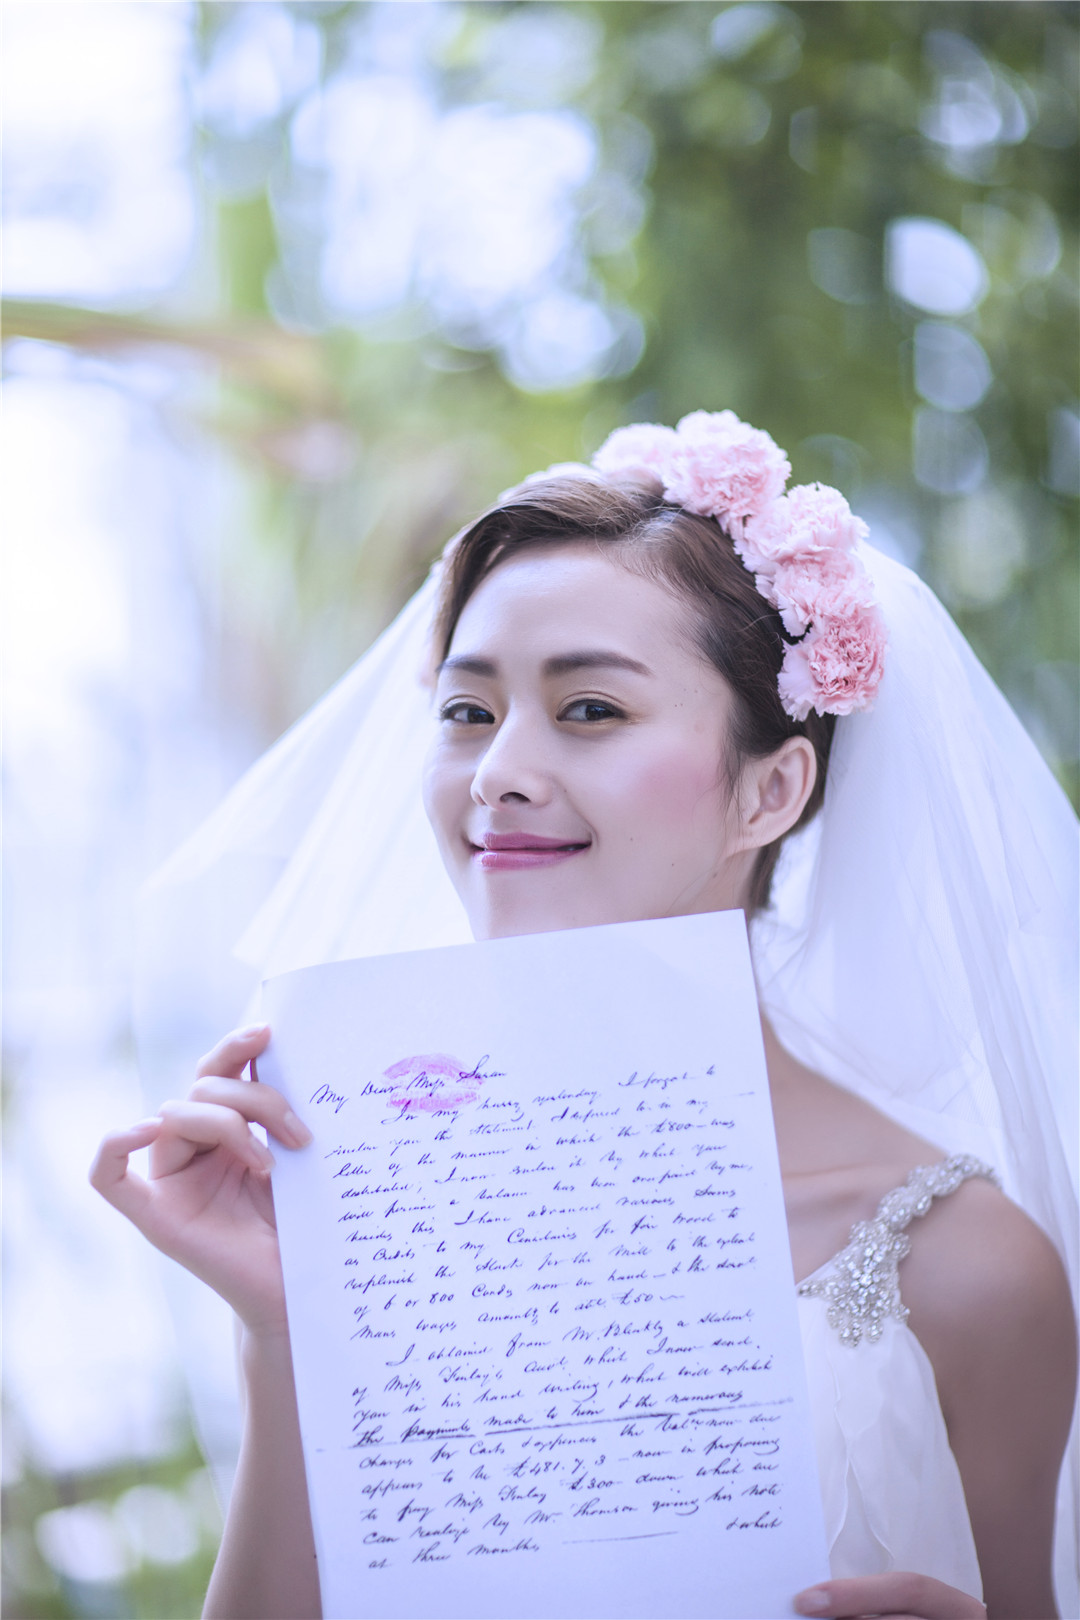 My Dear Miss Susan
In my hurry yesterday I forgot to
enclose you the Statement I referred to in my
letter of the manner in which the £800 – was
distributed, I now enclose it by which you
will perceive a balance has been overpaid by me,
besides this I have advanced various Sums
as Credits to my for fire wood to
replenish the Stock for the Mill to the extent
of 6 or 800 Cords now on hand – & the
Mans wages amounting to abt. £50 –
I obtained from Mr. Blinkly a Statemt.
of Miss Finlay's Acct. which I now send.
you in his hand writing, which will exhibit
the payments made to him & the numerous
charges for Costs & expences the Balce. now due
appears to be £481. 7. 3 – now in proposing
to pay Miss Finlay £300 – down which we
can realize by Mr. Thomson giving his note
at three months ——— & which